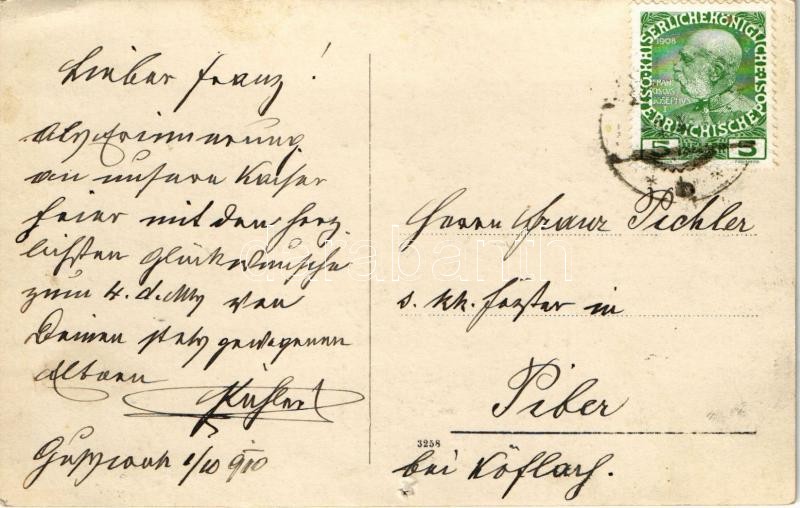 Lieber Franz!
als Erinnerung
an unsere Kaiser
feier mit den herz
lichsten Glückwünsche
zum 4. d. M. von
Deinen stets gewogenen
Altern
Gußwerk 1/10 910
KAISERLICHE KÖNIGLICHE ÖSTERREICHISCHE POST
1908
FRAN
CISCUS
JOSEPHUS
I
5 5
b
Herrn Franz Pichler
s. kk. Förster in
Piber
3258
bei Köflach.
darabanth